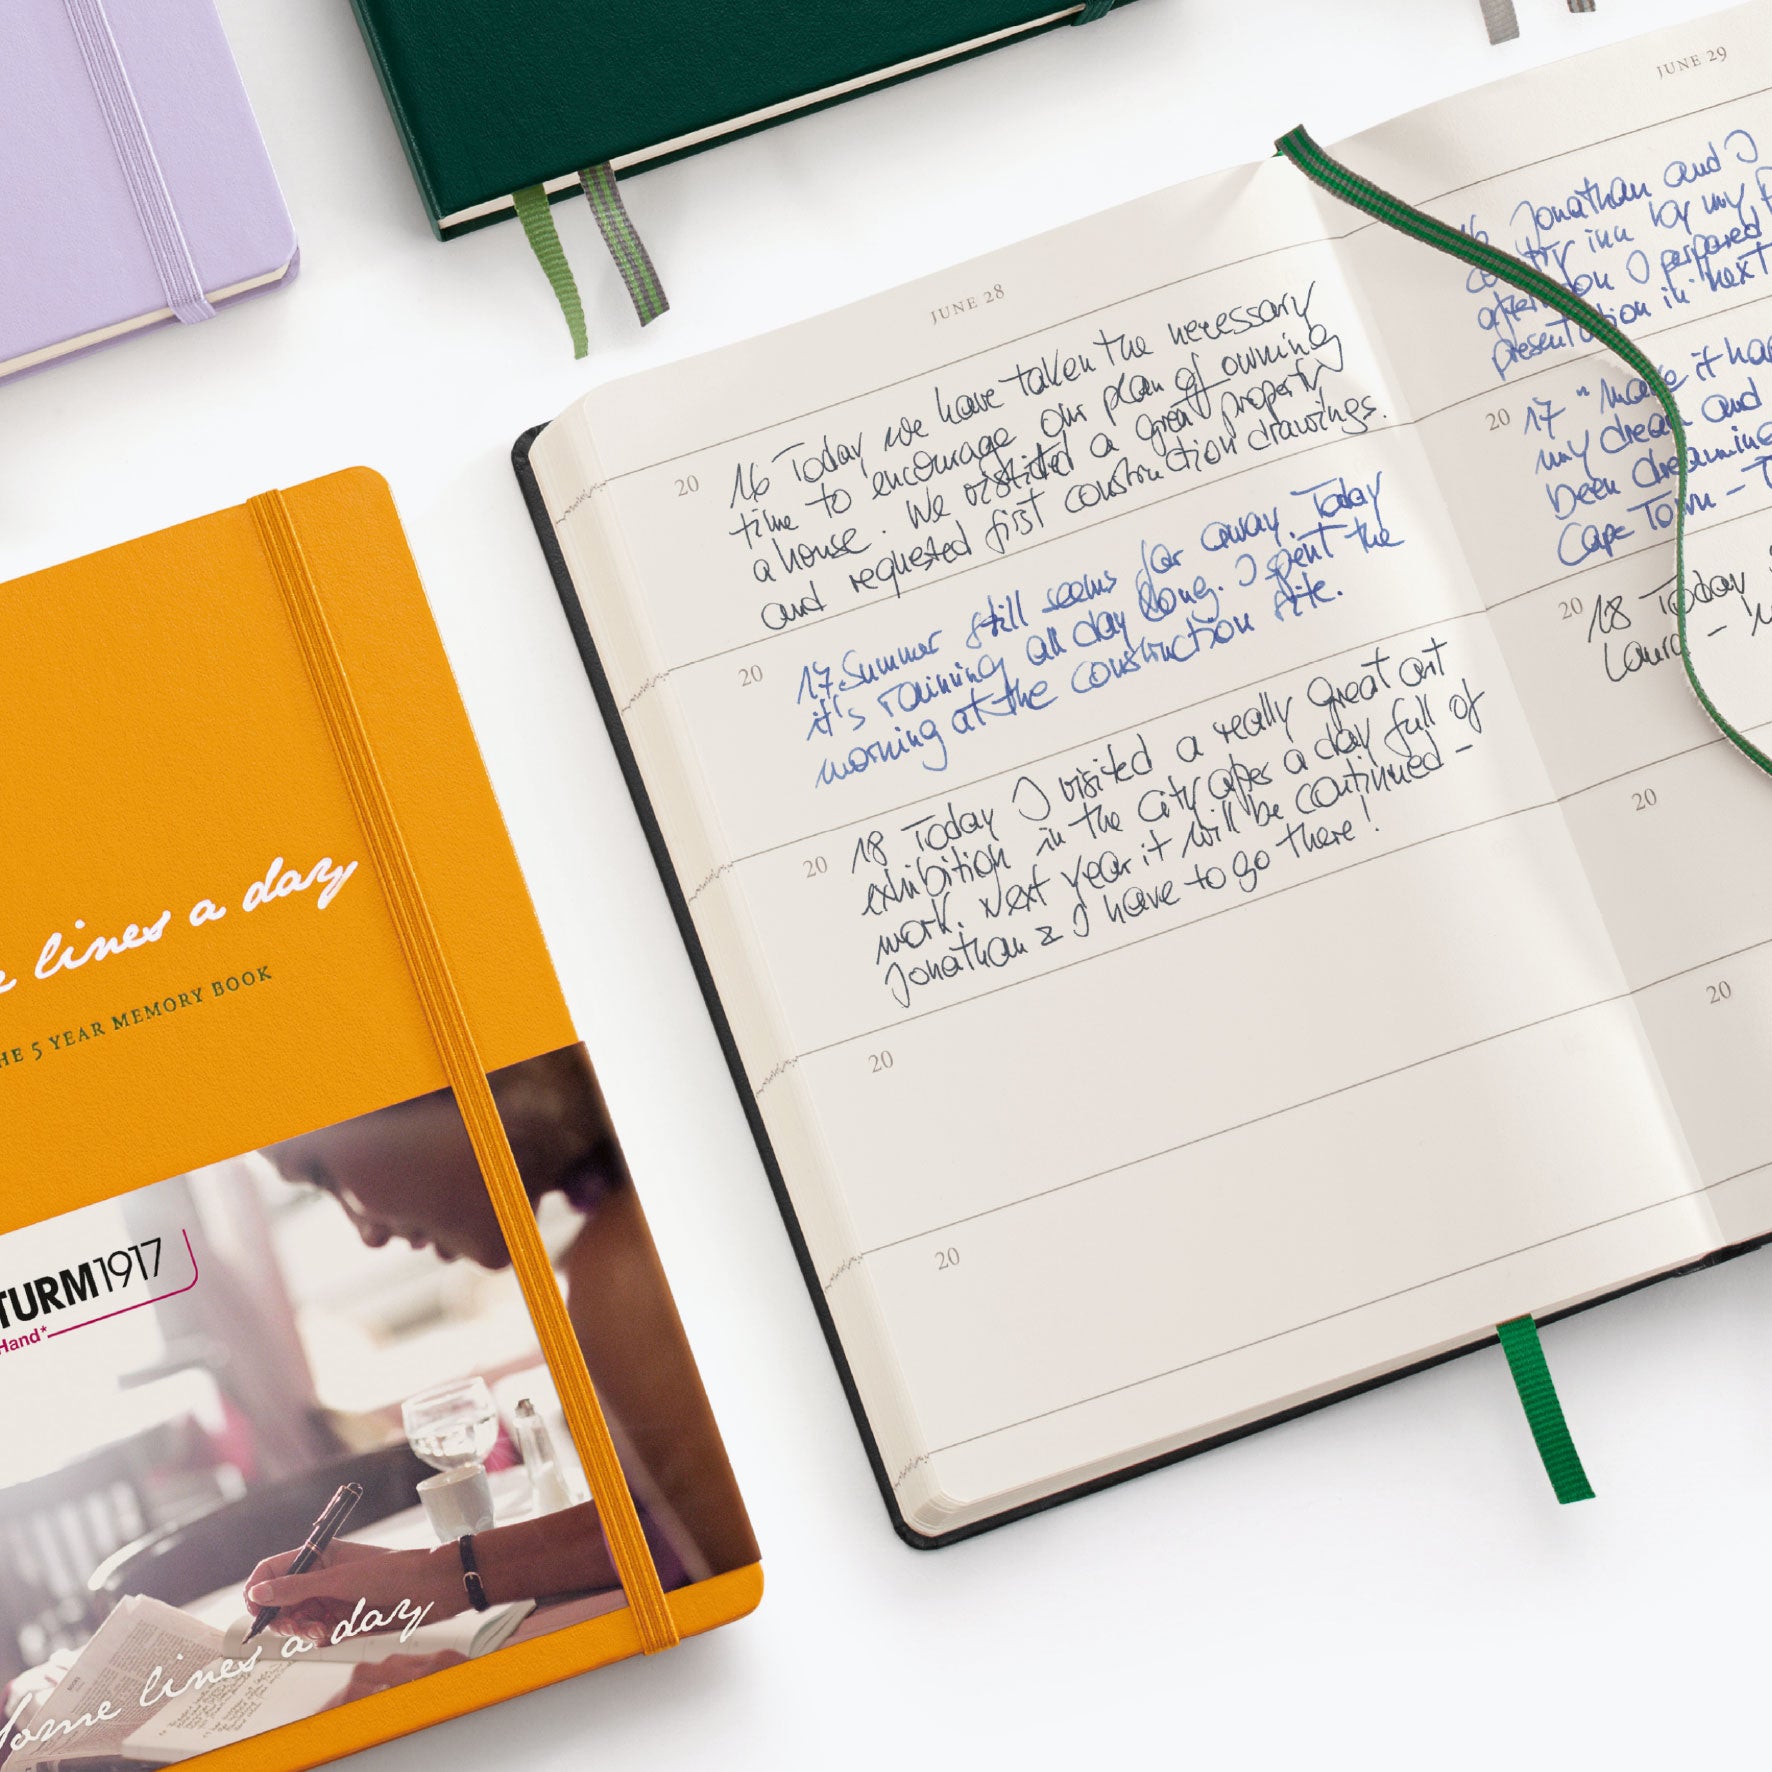 JUNE 28
20 16 Today we have taken the necessary
time to encourage our plan of owning
a house. We visited a great property
and requested first construction drawings.
20 17. Summer still seems far away. Today
it's raining all day long. I spent the
morning at the construction site.
20 18 Today I visited a really great art
exhibition in the city after a day full of
work. Next year it will be continued -
Jonathan & I have to go there!
20
20
JUNE 29
16 Jonathan and I
inn by my
I prepared
presentation in next
20 17 "Make it
my dream and
been dreaming
Cape Town -
20 18 Today
Laura -
20
20
lines a day
THE 5 YEAR MEMORY BOOK
TURM1917
Hand*
Some lines a day